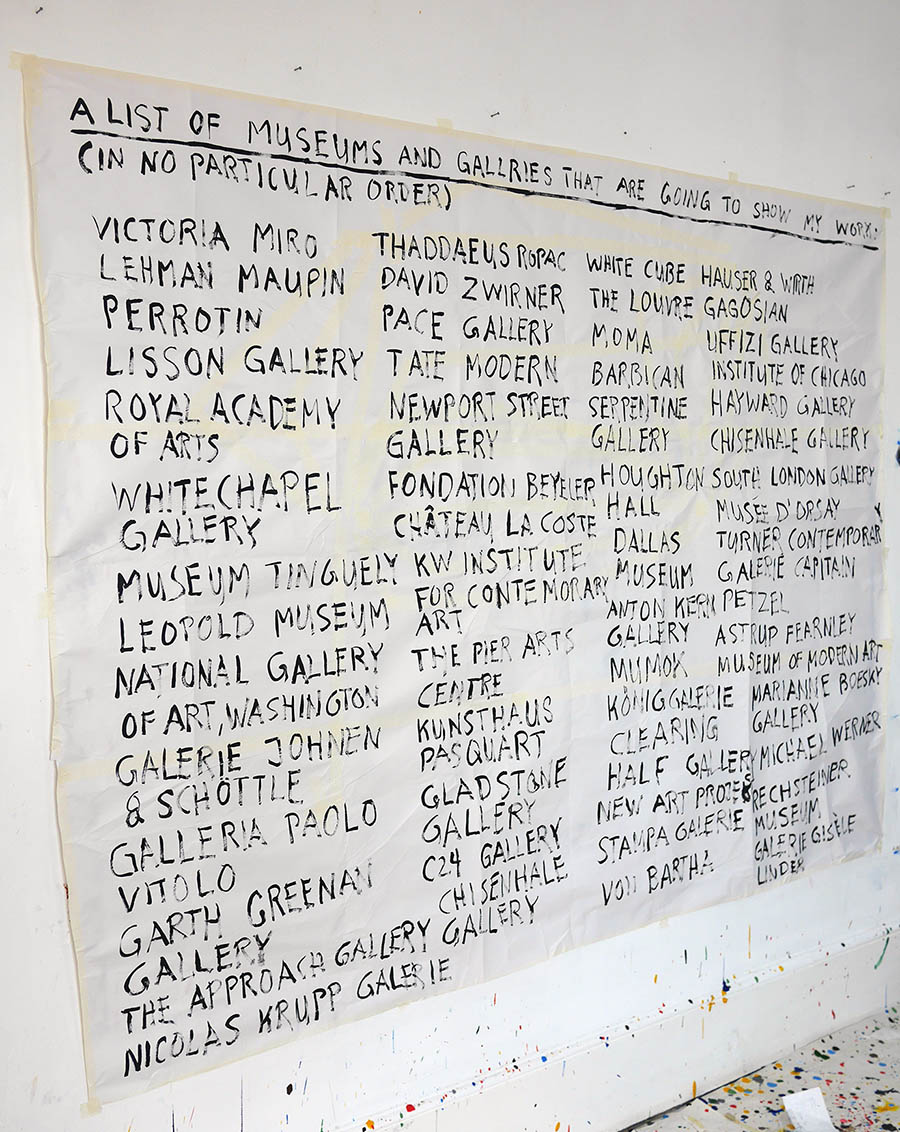 A LIST OF MUSEUMS AND GALLRIES THAT ARE GOING TO SHOW MY WORK:
(IN NO PARTICULAR ORDER)
VICTORIA MIRO
LEHMAN MAUPIN
PERROTIN
LISSON GALLERY
ROYAL ACADEMY
OF ARTS
WHITECHAPEL
GALLERY
MUSEUM TINGUELY
LEOPOLD MUSEUM
NATIONAL GALLERY
OF ART, WASHINGTON
GALERIE JOHNEN
& SCHÖTTLE
GALLERIA PAOLO
VITOLO
GARTH GREENAN
GALLERY
THE APPROACH GALLERY
NICOLAS KRUPP GALERIE
THADDAEUS ROPAC
DAVID ZWIRNER
PACE GALLERY
TATE MODERN
NEWPORT STREET
GALLERY
FONDATION BEYELER
CHÂTEAU LA COSTE
KW INSTITUTE
FOR CONTEMORARY
ART
THE PIER ARTS
CENTRE
KUNSTHAUS
PASQUART
GLADSTONE
GALLERY
C24 GALLERY
CHISENHALE
GALLERY
WHITE CUBE
THE LOUVRE
MOMA
BARBICAN
SERPENTINE
GALLERY
HOUGHTON
HALL
DALLAS
MUSEUM
ANTON KERN
GALLERY
MUMOK
KÖNIG GALERIE
CLEARING
HALF GALLERY
NEW ART PROJES
STAMPA GALERIE
VON BARTHA
HAUSER & WIRTH
GAGOSIAN
UFFIZI GALLERY
INSTITUTE OF CHICAGO
HAYWARD GALLERY
CHISENHALE GALLERY
SOUTH LONDON GALLERY
MUSÉE D'ORSAY
TURNER CONTEMPORARY
GALERIE CAPITAIN
PETZEL
ASTRUP FEARNLEY
MUSEUM OF MODERN ART
MARIANNE BOESKY
GALLERY
MICHAEL WERNER
RECHSTEINER
MUSEUM
GALERIE GISÈLE
LINDER